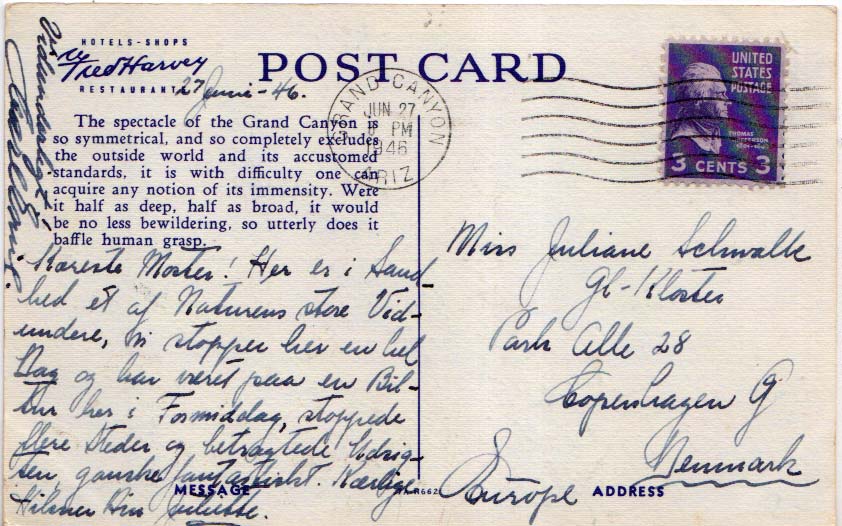 HOTELS-SHOPS
Fred Harvey
RESTAURANTS
POST CARD
27 Juni-46.
GRAND CANYON
JUN 27
PM
1946
ARIZ
UNITED
STATES
POSTAGE
THOMAS
JEFFERSON
3 CENTS 3
The spectacle of the Grand Canyon is
so symmetrical, and so completely excludes
the outside world and its accustomed
standards, it is with difficulty one can
acquire any notion of its immensity. Were
it half as deep, half as broad, it would
be no less bewildering, so utterly does it
baffle human grasp.
Kæreste Moster! Her er i Sand-
hed et af Naturens store Vid-
undere, vi stopper her en hel
Dag og har været paa en Bil-
tur her i Formiddag, stoppede
flere Steder og betragtede Udsig-
ten, ganske fantastisk. Kærlige
Hilsner Din Juliette.
Vidunderligt
MESSAGE
Miss Juliane Schwalk
Gl-Kloster
Park Alle 28
Copenhagen G
Denmark
Europe
ADDRESS